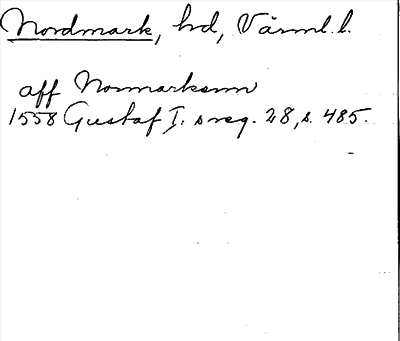 Nordmark, hd, Värml. l.
aff Normarkenn
1558 Gustaf I:s reg. 28, s. 485.